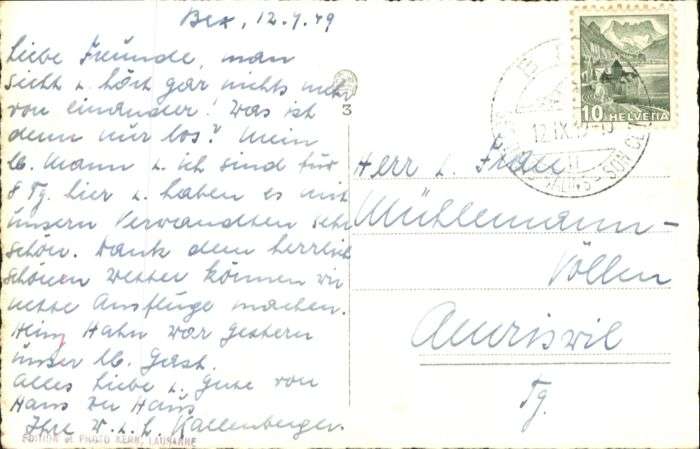 Bex, 12.9.49
Liebe Freunde, man
sieht u. hört gar nichts mehr
von einander! Was ist
denn nur los? Mein
lb. Mann u. ich sind für
8 Tg. hier u. haben es mit
unsern Verwandten sehr
schön. Dank dem herrlich
schönen Wetter können wir
nette Ausflüge machen.
Hahn war gestern
unser lb. Gast.
Alles Liebe u. Gute von
Haus zu Haus
Ihre W. u. L. Kallenberger.
EDITION et PHOTO KERN, LAUSANNE
3
10 HELVETIA
12.IX.
SON CL
Herr u. Frau
Mühlemann-
Vollen
Amriswil
Tg.